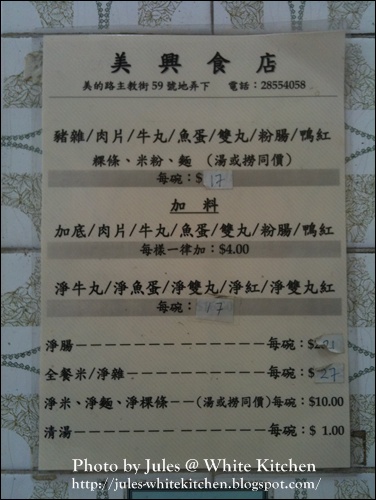 美興食店
美的路主教街59號地弄下 電話：28554058
豬雜/肉片/牛丸/魚蛋/雙丸/粉腸/鴨紅
粿條、米粉、麵 （湯或撈同價）
每碗：$ 17
加料
加底/肉片/牛丸/魚蛋/雙丸/粉腸/鴨紅
每樣一律加：$4.00
淨牛丸/淨魚蛋/淨雙丸/淨紅/淨雙丸紅
每碗： 17
淨腸－－－－－－－－－－－－每碗：$
全餐米/淨雜－－－－－－－－－每碗：$ 27
淨米、淨麵、淨粿條－－（湯或撈同價）每碗：$10.00
清湯－－－－－－－－－－－－每碗：$ 1.00
Photo by Jules @ White Kitchen
http://jules-whitekitchen.blogspot.com/